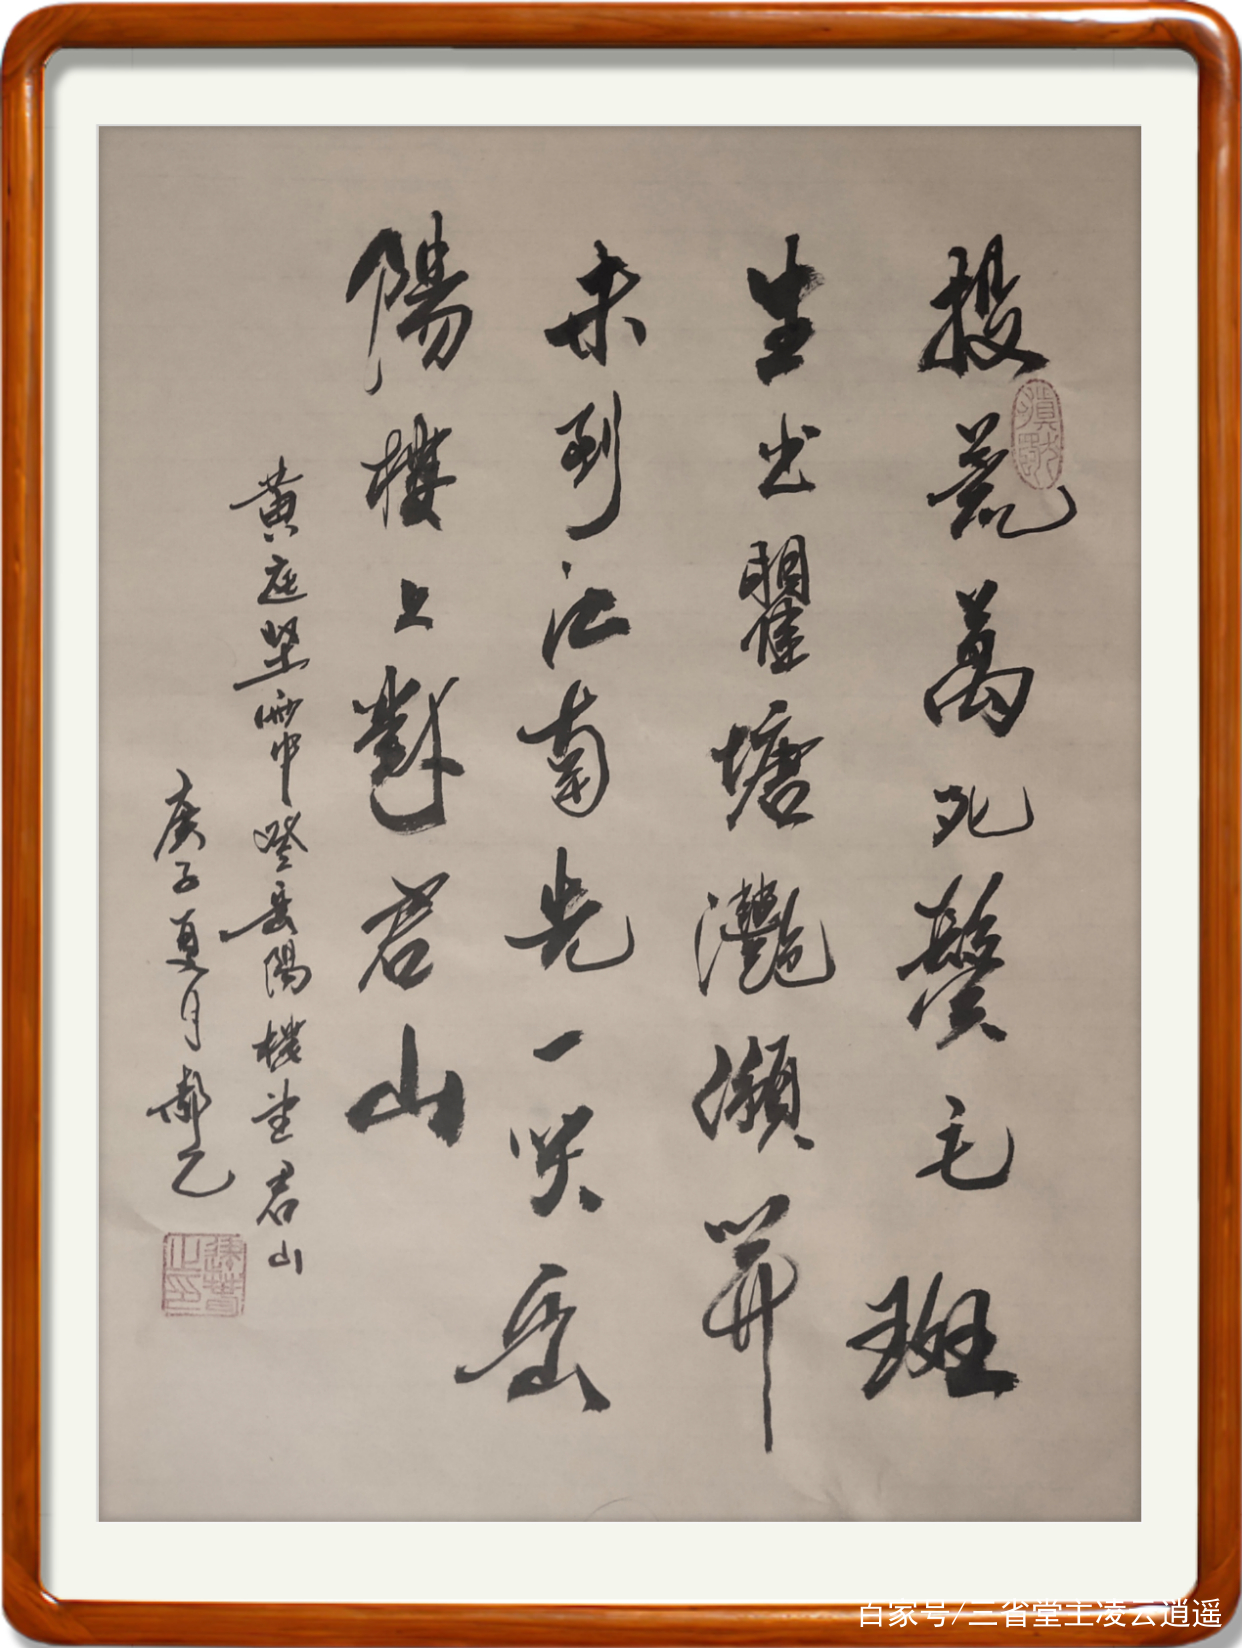 投荒萬死鬢毛斑
生出瞿塘灧澦關
未到江南先一笑岳
陽樓上對君山
黄庭堅雨中登岳陽樓望君山
庚子夏月
百家号/三省堂主凌云逍遥